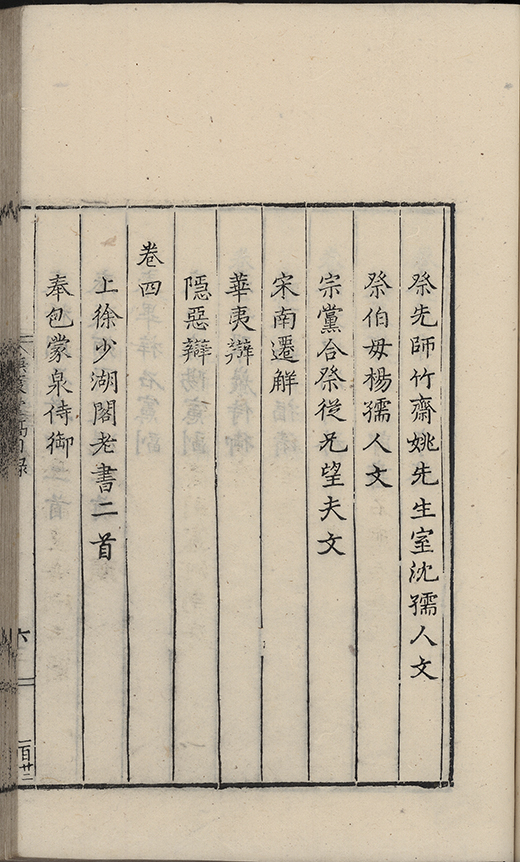 祭先師竹齋姚先生室沈孺人文
祭伯母楊孺人文
宗黨合祭從兄望夫文
宋南遷解
華夷辯
隱惡辯
卷四
上徐少湖閣老書二首
奉包蒙泉侍御
目錄
六
一百廿二